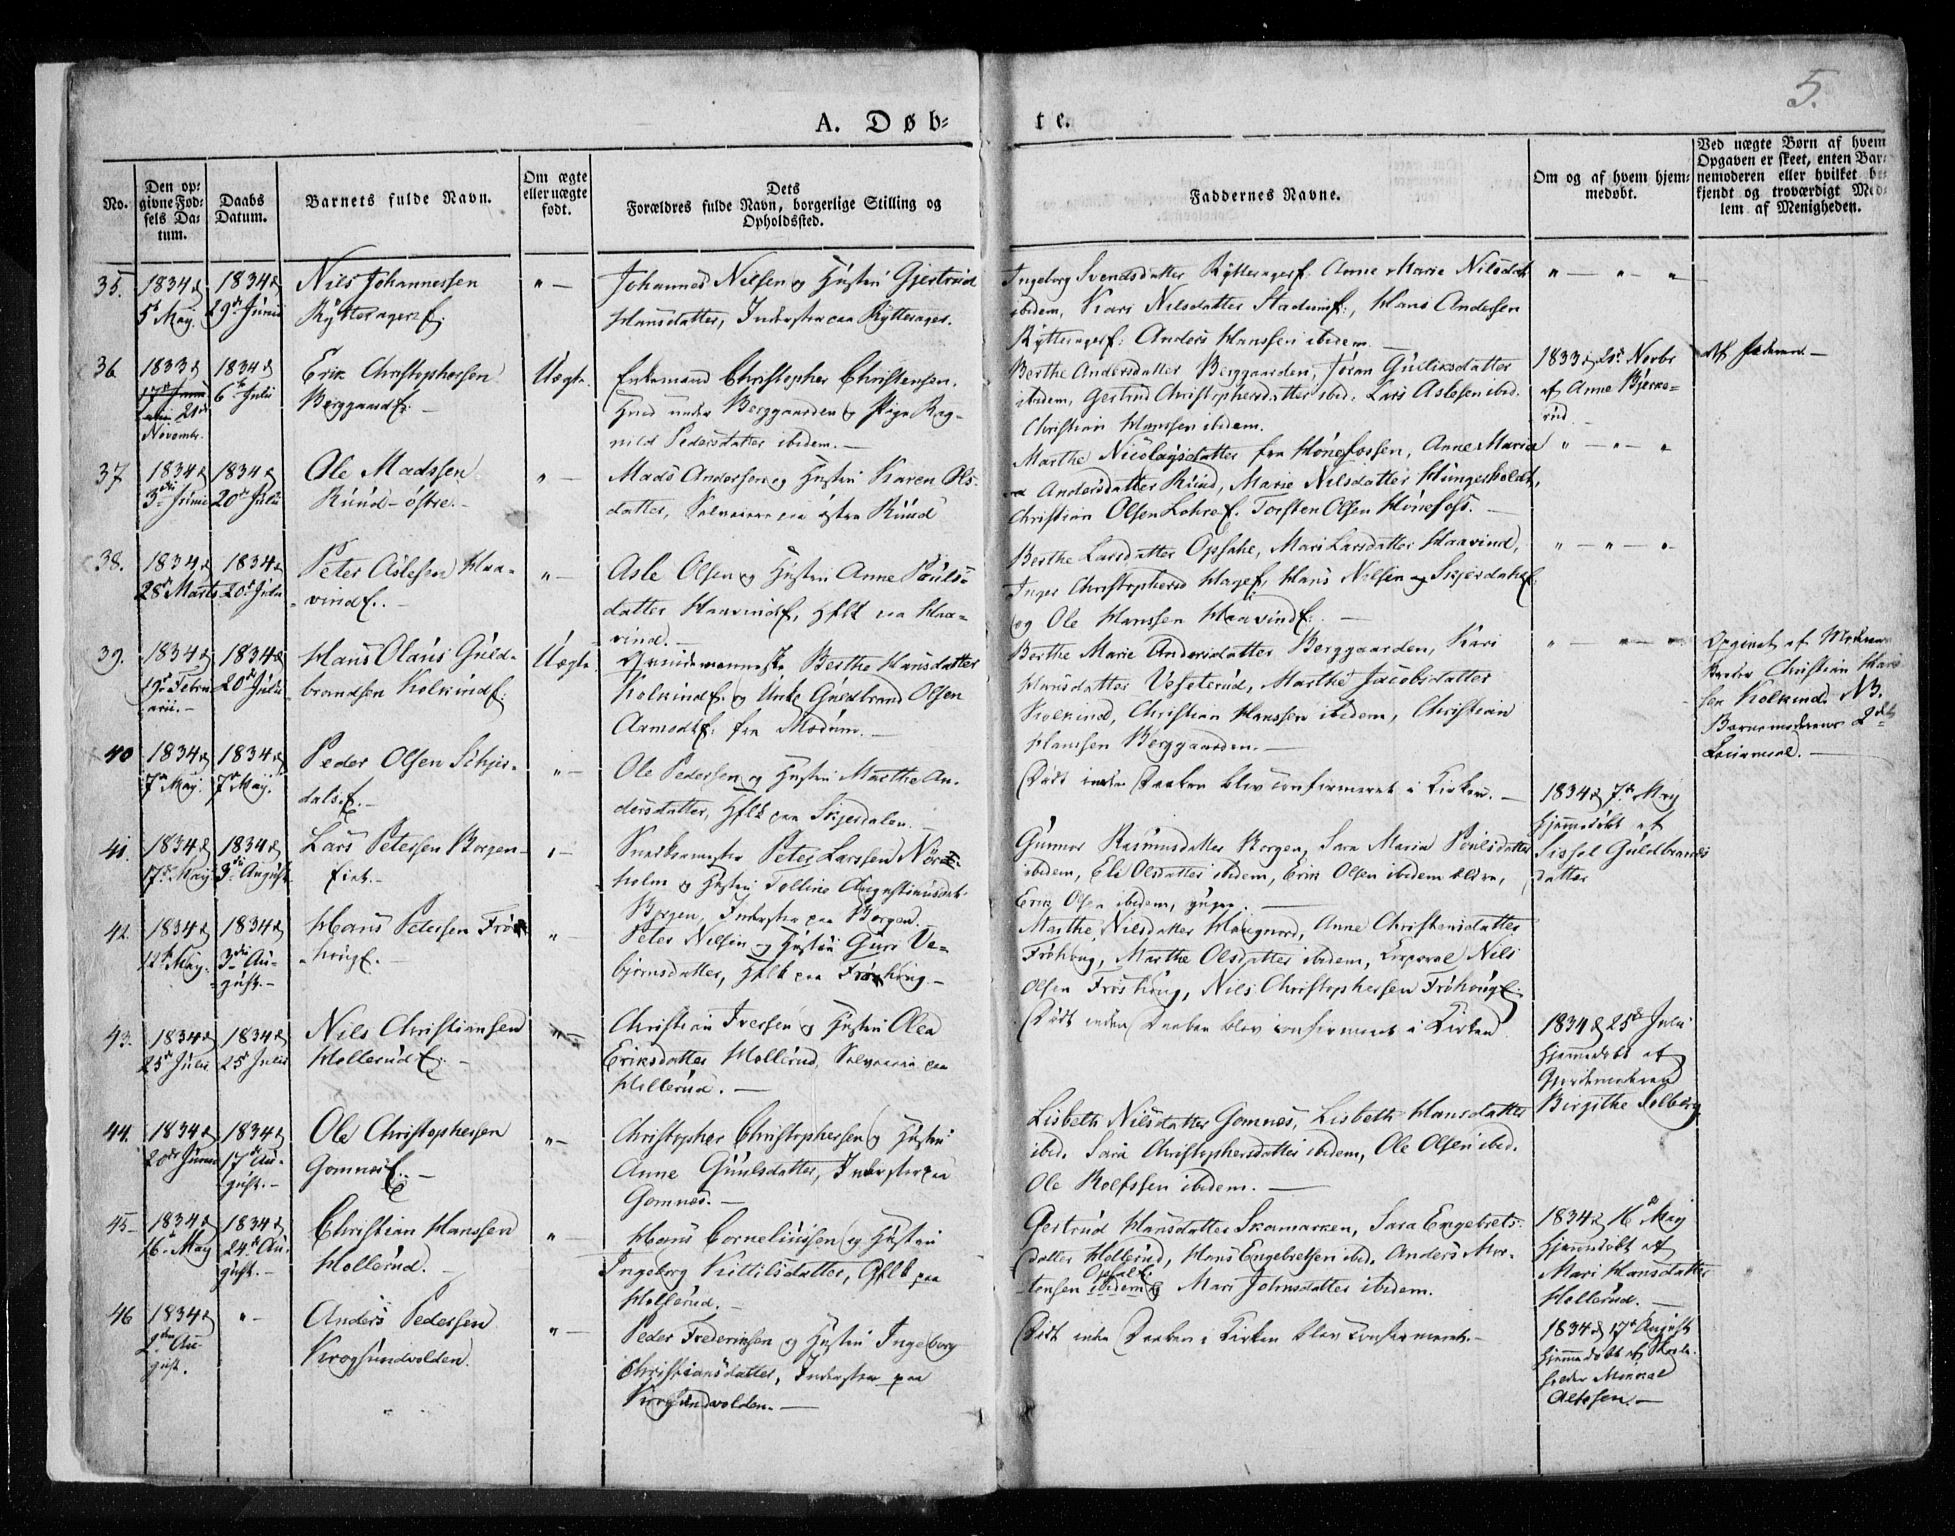 5.
A. Døb-
te.
No.
Den op-
givne Fød-
sels Da-
tum.
Daabs
Datum.
Barnets fulde Navn.
Om ægte
eller uægte
født.
Dets
Forældres fulde Navn, borgerlige Stilling og
Opholdssted.
Faddernes Navne.
Om og af hvem hjem-
medøbt.
Ved uægte Børn af hvem
Opgaven er skeet, enten Bar-
nemoderen eller hvilket be-
kjendt og troværdigt Med-
lem af Menigheden.
35.
1834 d
5t May.
1834 d
29de Junii
Nils Johannessen
Rytteragerf.
" —
Johannes Nilsen og Hustru Gjertrud
Hansdatter, Inderster paa Rytterager.
Ingeborg Svendsdatter Rytteragerf. Anne Marie Nilsdat
ibidem, Kari Nilsdatter Stadumf., Hans Andersen
Rytteragerf. Anders Hanssen ibidem —
" — " — "
36.
1833 d
21de
Novembr.
1834 d
6te Julii
Erik Christophersen
Berggaardf. —
Uægte
Enkemand Christopher Christensen
under Berggaarden og Pige Rag-
nild Pedersdatter ibidem. —
Berthe Andersdatter Berggaarden, Jøran Guliksdatter
ibidem, Gertrud Christophersdatter ibid. Lars Aslesen ibid.
Christian Hanssen ibidem.
1833 d 21de Novbr
af Anne Bjerke-
rud
Af Faderen. —
37
1834 d
3die Junii
1834 d
20de Julii
Ole Madssen
Ruud-østre. —
" —
Mads Andersen og Hustru Karen Ols-
datter, Selveiere paa østre Ruud
Marthe Nicolaysdatter fra Hønefossen, Anne Maria
Andersdatter Ruud, Marie Nilsdatter Hungerholdt,
Christian Olsen Lohref. Torsten Olsen Hønefoss. —
" — " — "
38.
1834 d
28de Marts
1834 d
20de Julii
Peter Aslesen Haa-
vindf. —
" —
Asle Olsen og Hustru Anne Pouls-
datter Haavindf, Hflk paa Haa-
vind. —
Berthe Larsdatter Opsahe, Mari Larsdatter Haavind,
Inger Christophersd Hagef, Hans Nilsen Skjerdalf.
og Ole Hanssen Haavindf. —
" — " — "
39.
1834 d
19de Febru-
arii. —
1834 d
20de Julii
Hans Olaus Guld-
brandsen Kolkindf.
Uægte
Berthe Hansdatter
Kolkindf. og Unk. Guldbrand Olsen
Aamodtf. fra Modum. —
Berthe Marie Andersdatter Berggaarden, Kari
Hansdatter Veseterud, Marthe Jacobsdatter
Kolkind, Christian Hanssen ibidem, Christian
Hanssen Berggaarden. —
" — " — "
Opgivet af Moderens
Broder Christian Hans-
sen Kolkind. NB.
Barnemoderens 2det
Leiermaal. —
40
1834 d
7de May.
1834 d
7de May.
Peder Olsen Schjer-
dalsf. —
" —
Ole Pedersen og Hustru Marthe An-
dersdatter, Hflk paa Skjerdalen. —
Dødt inden Daaben blev confirmeret i Kirken. —
1834 d 7de May
hjemmedøbt af
Sissel Guldbrands-
datter
41.
1834 d
17de May
1834 d
3die August.
Lars Petersen Borgen-
eiet. —
" —
Snedkermester Peter Larssen Nord-
holm og Hustru Tolline Augustinusdat.
Borgen, Inderster paa Borgen.
Gunnor Rasmusdatter Borgen, Sara Maria Poulsdatter
ibidem, Eli Olsdatter ibidem, Erik Olsen ibidem ældre,
Erik Olsen ibidem, yngre. —
42.
1834 d
12de May.
1834 d
3die Au-
gust. —
Hans Petersen Frøs-
hougf. —
" —
Peter Nilsen og Hustru Guri Ve-
bjørnsdatter, Hflk paa Frøshoug —
Marthe Nilsdatter Hougnord, Anne Christensdatter
Frøhoug, Marthe Olsdatter ibidem, Corporal Nils
Olsen Frøshoug, Nils Christophersen Frøhougf.
43.
1834 d
25de Julii
1834 d
25de Julii
Nils Christiansen
Hollerudf. —
" —
Christian Iversen og Hustru Olea
Eriksdatter Hollerud, Selveiere paa
Hollerud. —
Dødt inden Daaben blev confirmeret i Kirken
1834 d 25de Julii
hjemmedøbt af
Gjordemoderen
Birgithe Solberg
44.
1834 d
20de Junii
1834 d
17de Au-
gust. —
Ole Christophersen
Gomnesf. —
" —
Christopher Christophersen og Hustru
Anne Guulsdatter, Inderster paa
Gomnes. —
Lisbeth Nilsdatter Gomnes, Lisbeth Hansdatter
ibid. Sara Christophersdatter ibidem, Ole Olsen ibid.
Ole Rolfssen ibidem. —
45 —
1834 d
16de May
1834 d
24de Au-
gust. —
Christian Hanssen
Hollerud. —
" —
Hans Corneliussen og Hustru
Ingeborg Kittilsdatter, Hflk paa
Hollerud. —
Gertrud Hansdatter Skamarken, Sara Engebrets-
datter Hollerud, Hans Engebretsen ibid. Anders Mor-
tensen ibidem og Mari Johnsdatter ibidem.
1834 d 16de May
hjemmedøbt af
Mari Hansdatter
Hollerud. —
46
1834 d
2den Au-
gust.
" —
Anders Pedersen
Krogsundvolden.
" —
Peder Frederiksen og Hustru Ingeborg
Christiansdatter, Inderster paa
Krogsundvolden. —
Dødt inden Daaben i Kirken blev confirmeret. —
1834 d 17de August
hjemmedøbt af Skole-
holder Mikkel
Asle sen. —